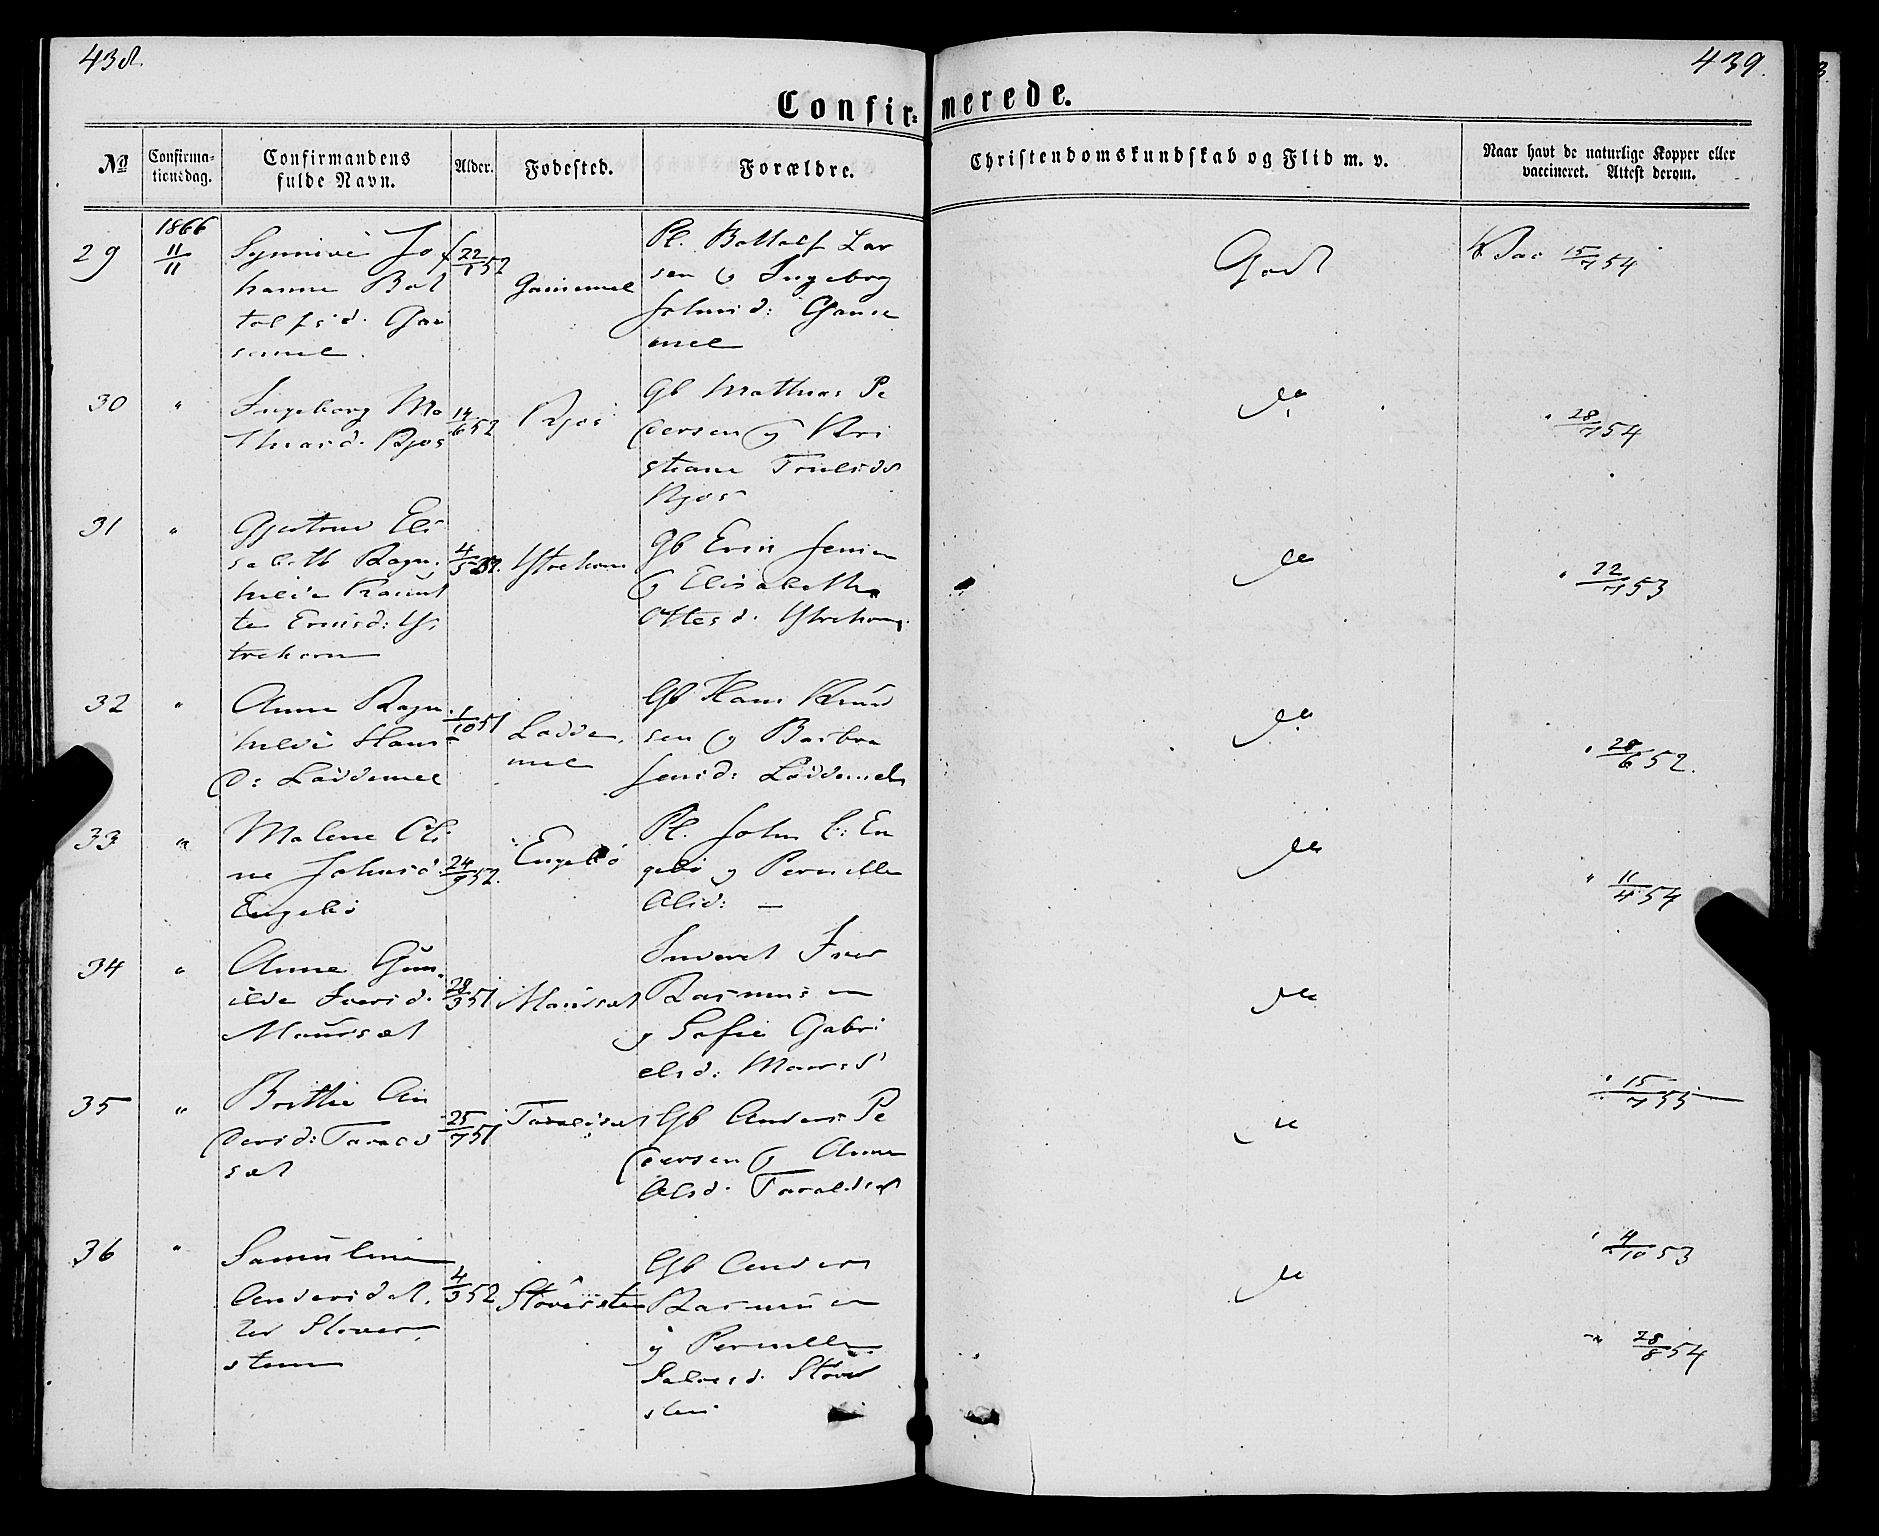 438.
439.
Confir=
merede.
No
Confirma-
tionsdag.
Confirmandens
fulde Navn.
Alder.
Fødested.
Forældre.
Christendomskundskab og Flid m. v.
Naar havt de naturlige Kopper eller
vaccineret. Attest derom.
1866
29
11/11
Synnive Jo
hanne Bot
tolfsd.
22/1 52
Pl. Bottolf Lar
sen og Ingeborg
Johnsd:
mel
Godt
Vac 15/7 54
30
"
Ingeborg Ma
thiasd. Rjos
14/6 52
Gb Mathias Pe
dersen og Kri
stiane
do
" 28/7 54
31
"
Gjertrud Eli
sabeth Ragn.
hilda
te
trehorn
4/5 52.
Ytrehorn
Gb Jensen
og Elisabetha
Ottesd. Ytrehorn
do
" 22/7 53
32
"
Anne Ragn.
hilde Hans
d: Laddemel
1/10 51
Ladde
mel
Gb Hans Knud
sen og Barbra
Jensd: Laddemel
do
" 28/6 52.
33
"
Malene Oli
ne Johnsd.
Engebø
24/9 52.
Engebø
Pl. John O: En
gebø og Pernille
Olsd: —
do
" 11/4 54
34
"
Anne Gun.
ilde Iversd.
Maursæt
28/3 51
Maursæt
Iver
Rasmusen
og Sofie Gabri
elsd:
do
" 15/7 55
35
"
Brithe An
dersd: Tarald
sæt
25/7 51
Taraldsæt
Gb Anders Pe
dersen og Anne
Olsd. Taraldsæt
do
" 4/10 53
36
"
Samuline
Andersdat.
ter Støver
steen
4/3 52
Støversten
Gb Anders
Rasmusen
og Pernille
Støver
sten
do
" 28/8 54